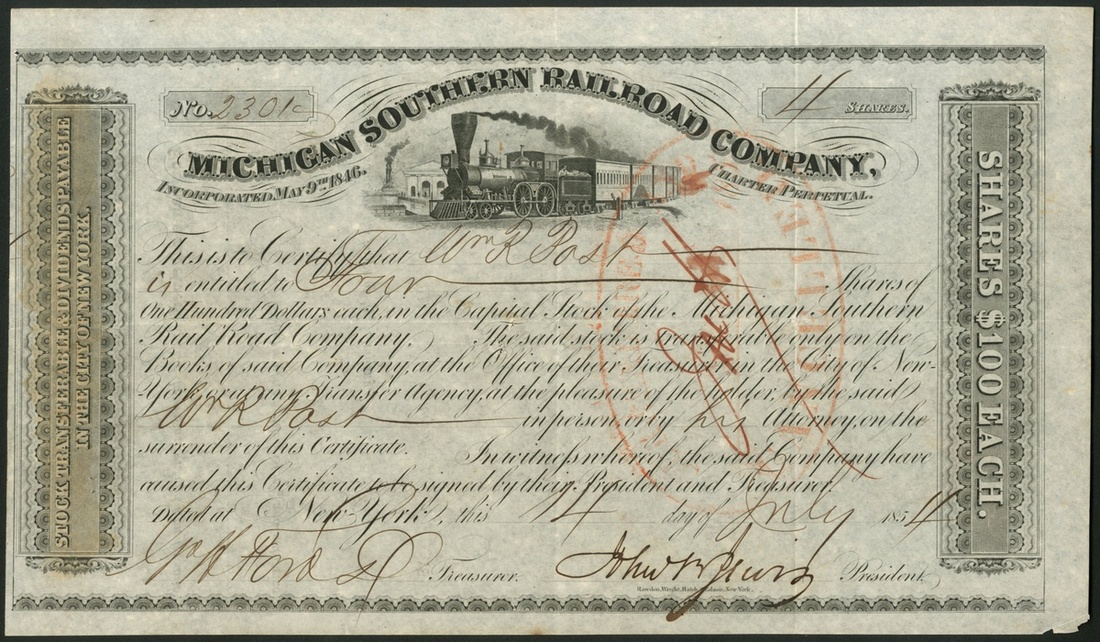 No. 2301
4 SHARES.
MICHIGAN SOUTHERN RAILROAD COMPANY,
INCORPORATED, MAY 9TH 1846.
CHARTER PERPETUAL.
STOCK TRANSFERABLE & DIVIDENDS PAYABLE
IN THE CITY OF NEW YORK.
SHARES $100 EACH.
This is to Certify that Wm R Post
is entitled to Four Shares of
One Hundred Dollars each, in the Capital Stock of the Michigan Southern
Rail Road Company. The said stock is transferable only on the
Books of said Company, at the Office of their Treasurer, in the City of New-
York, or at any Transfer Agency, at the pleasure of the Holder, by the said
Wm R Post in person, or by his Attorney, on the
surrender of this Certificate. In witness whereof, the said Company have
caused this Certificate to be signed by their President and Treasurer.
Dated at New-York, this 14 day of July 1854
Treasurer. President.
Rawdon, Wright, Hatch & Edson, New-York.